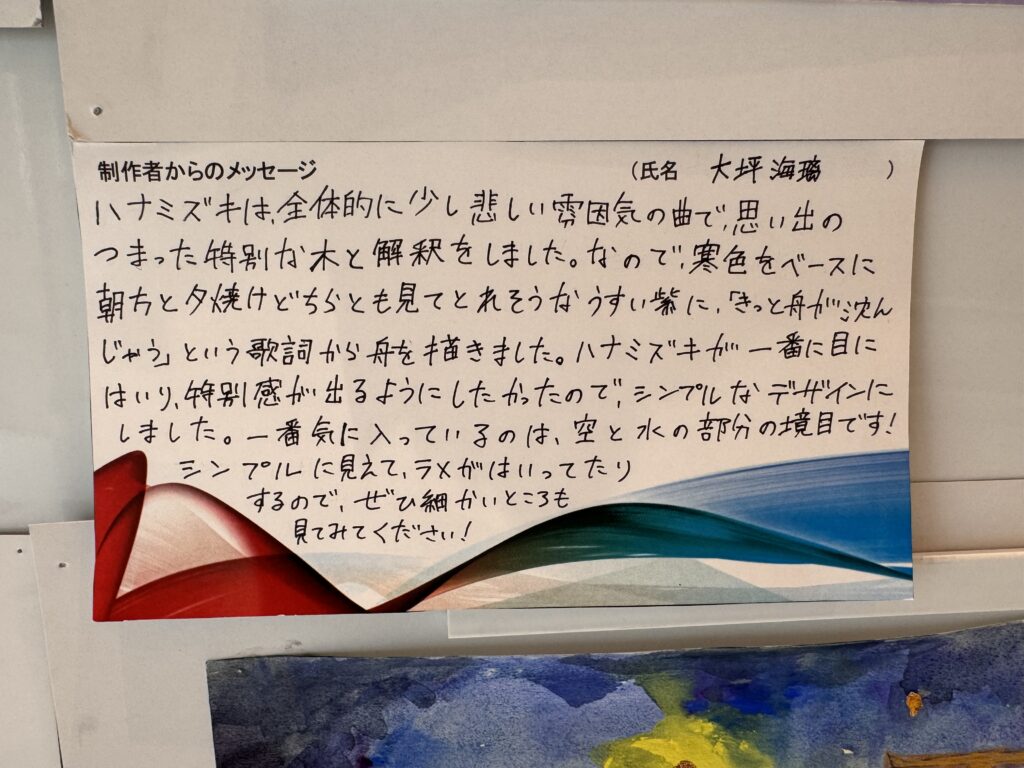 制作者からのメッセージ (氏名 大坪海璃 )
ハナミズキは、全体的に少し悲しい雰囲気の曲で、思い出の
つまった特別な木と解釈をしました。なので、寒色をベースに
朝方と夕焼けどちらとも見てとれそうなうすい紫に、「きっと舟が沈ん
じゃう」という歌詞から舟を描きました。ハナミズキが一番に目に
はいり、特別感が出るようにしたかったので、シンプルなデザインに
しました。一番気に入っているのは、空と水の部分の境目です!
シンプルに見えて、ラメがはいってたり
するので、ぜひ細かいところも
見てみてください!